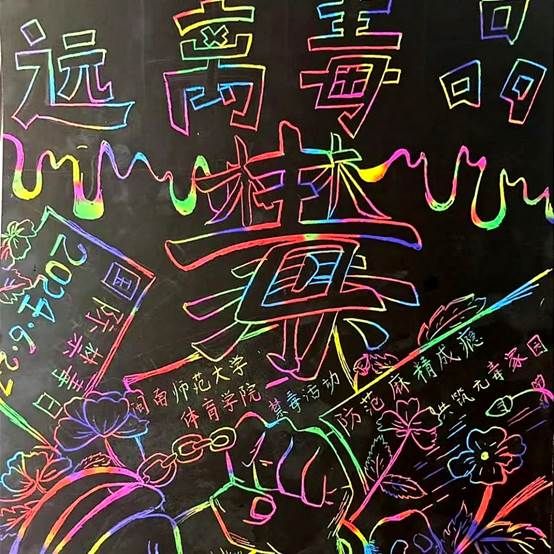 远离毒品
禁毒
国际禁毒日
闽南师范大学
体育学院 禁毒活动
防范麻精成瘾
共筑无毒家园